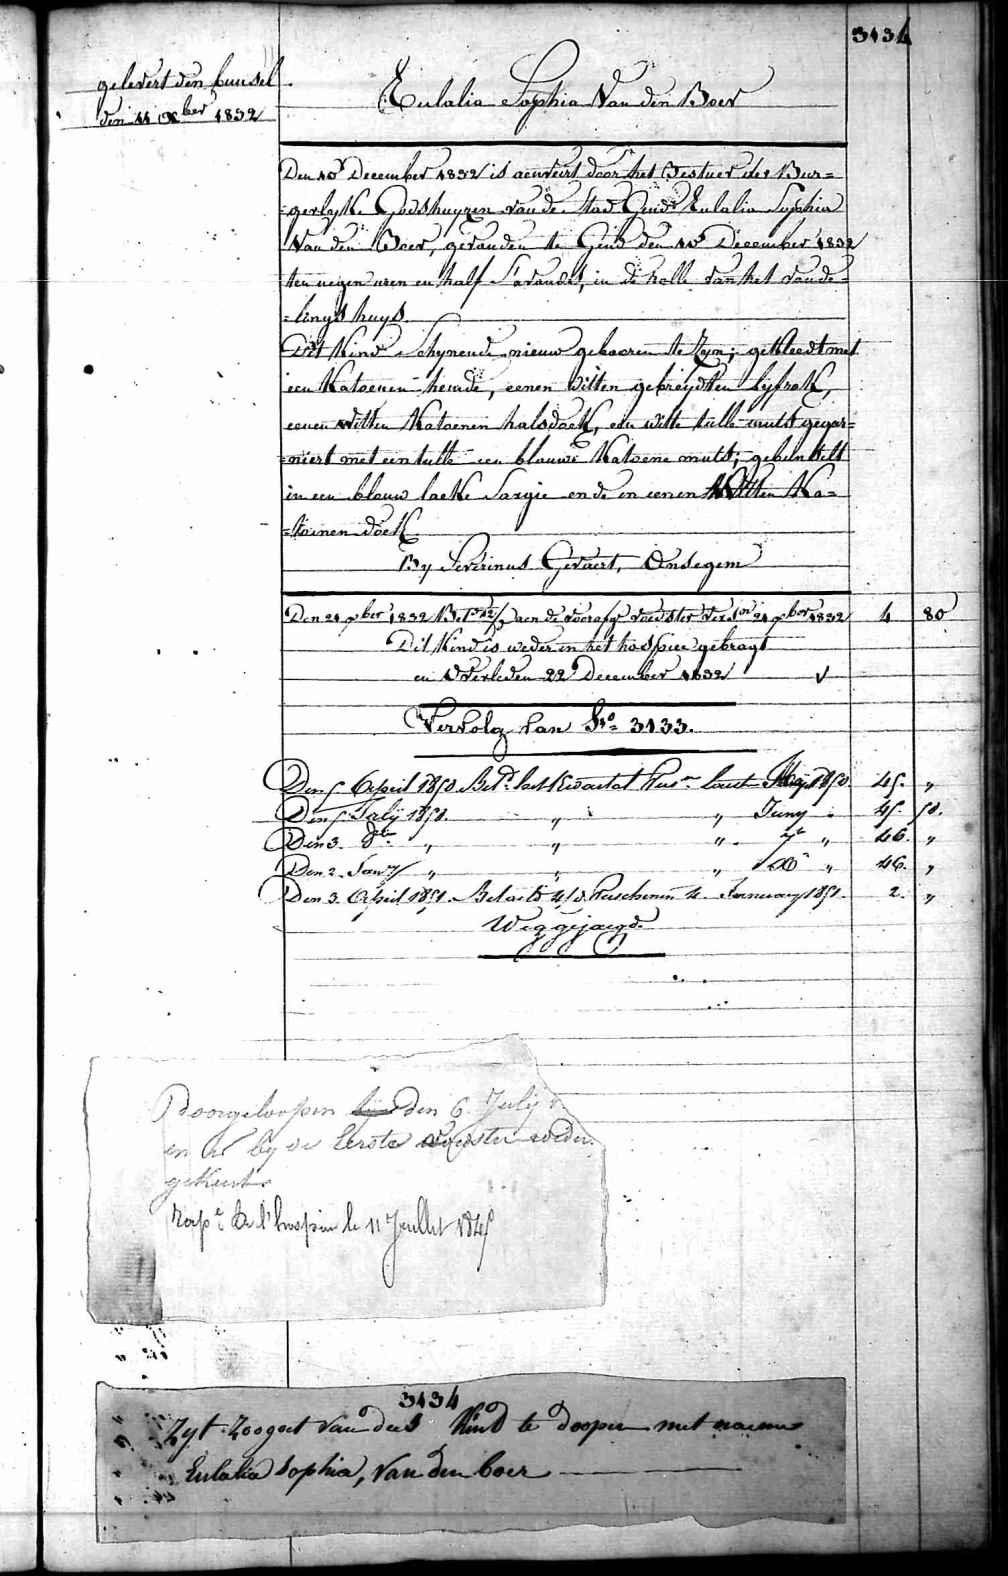 3134
gelevert den bunsel
den 11 Xber 1832
Eulalia Sophia Van den Boer
Den 10e December 1832 is aenveirt door het Bestuer der Bur=
=gerlyke Godshuyzen van de Stad Gend Eulalia Sophia
Van den Boer, gevonden te Gend den 10e December 1832
ten negen uren en half S'avonds, in de rolle van het vonde=
=lings huys.
Dit Kind schynende nieuw gebooren te zyn; gekleedt met
een Katoenen hemde, eenen witten gebreydten Lyfrok,
eenen witten Katoenen halsdoek, een witte tulle muts gegar=
=niert met een tulle een blauwe Katoene muts; gebunselt
in een blauw laeke Sargie en de in eenen Witten Ka=
=toenen doek
By Severinus Gevaert, Onsegem
Den 21 Xber 1832 Bet. aen de voorsz. voedster 21 Xber 1832 4 80
Dit Kind is weder in het hospice gebragt
en Overleden 22 December 1832
Vervolg van No 3133.
Den 5 April 1850 Betd. het Kwartaal laest 1850 45. "
Den 5 July 1850. " " Juny " 45. 50.
Den 3. 8ber " " " 7br " 46. "
Den 2. Janry " " Xbr " 46. "
Den 3. April 1851. 4 January 1851. 2. "
Weggejaegd.
Doorgeloopen den 6 July
en by de Eerste voedster weder
gekeert
de l'hospice le 11 Juillet 1845
3134
Zyt zoo goet van dees Kind te doopen met naeme
Eulalia Sophia, Van den boer